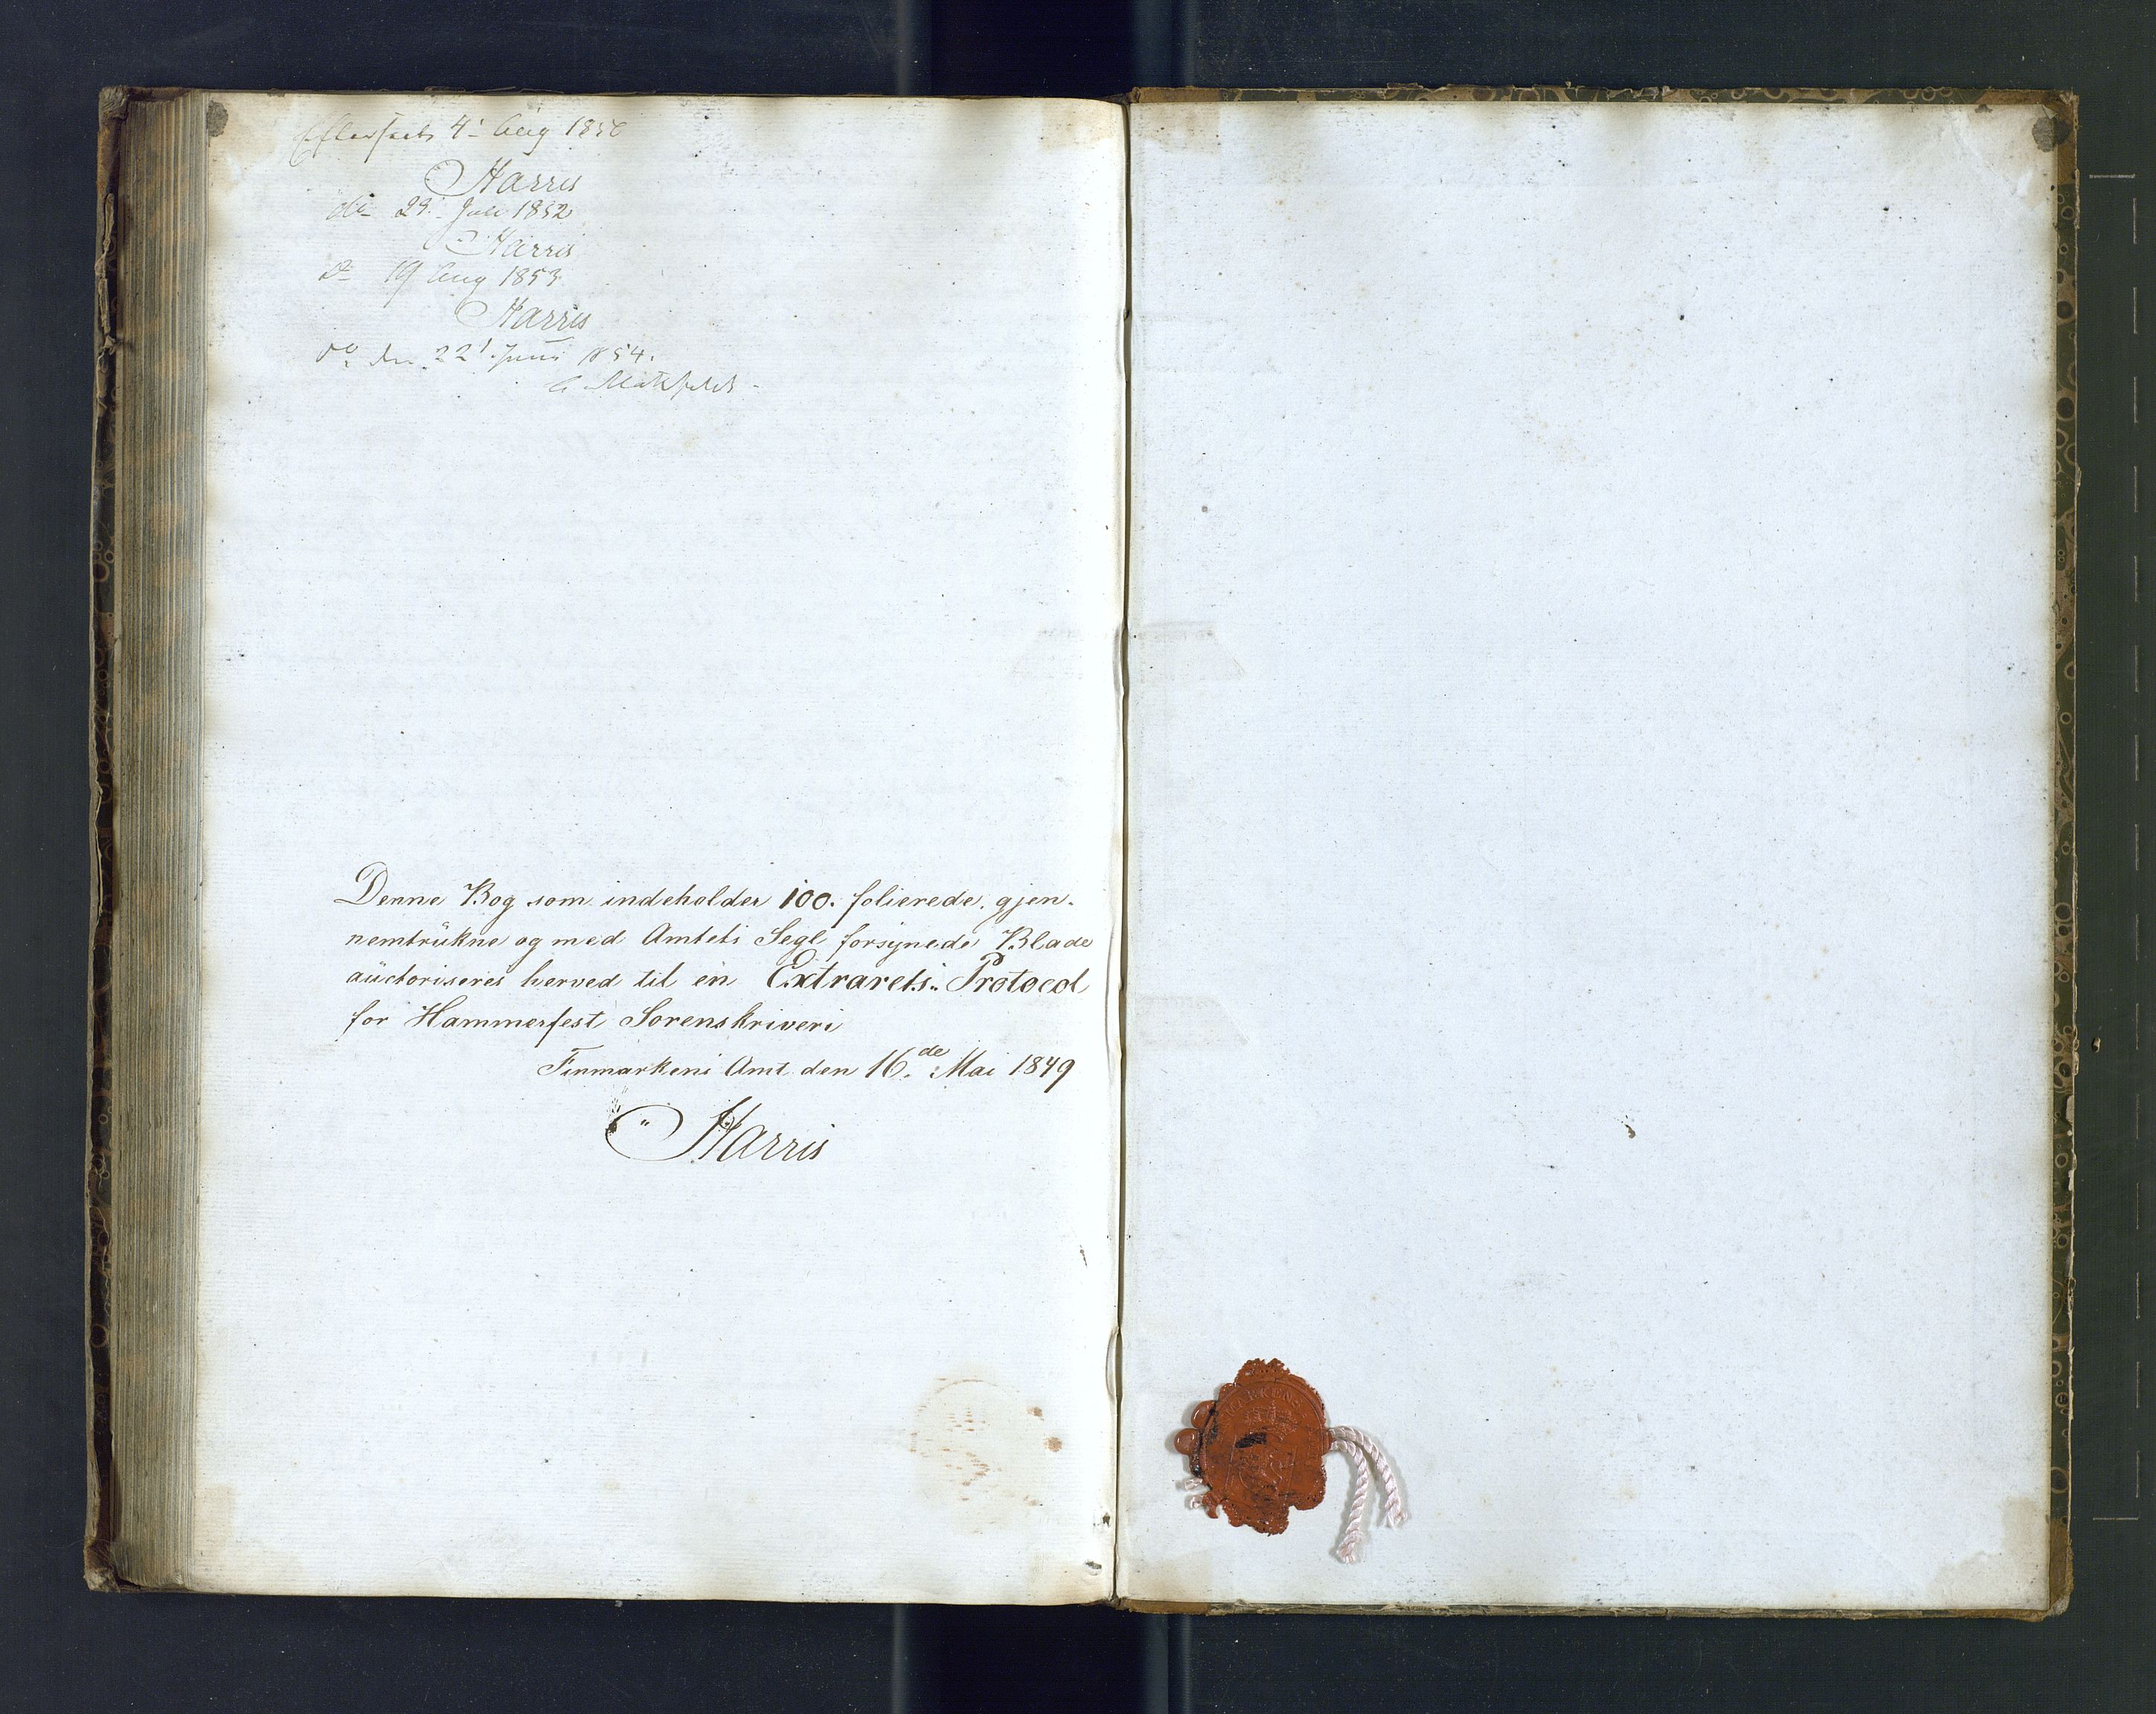 Efterseet 4de Aug 1850
Harris
do 29. Juli 1852
Harris
do 19 Aug 1853
Harris
do den 22' Juni 1854.
Denne Bog som indeholder 100. folierede, gjen-
nemtrükne og med Amtets Segl forsÿnede Blade
aüctoriseres herved til en Extrarets- Protocol
for Hammerfest Sorenskriveri
Finmarkens Amt den 16.de Mai 1849
Harris